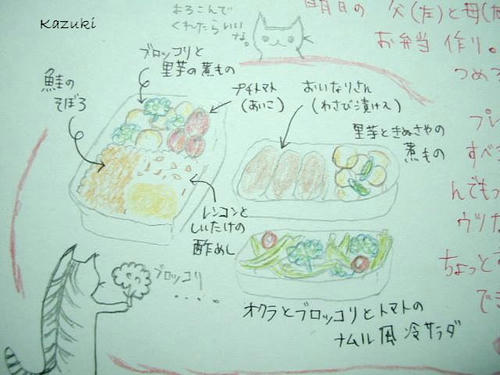 Kazuki
よろこんで
くれたらいい
な。
明日の 父(左)と母(
お弁当 作り。
つめ
プレ
すべ
んでも
ウッカ
ちょっと
でき
ブロッコリと
里芋の煮もの
鮭の
そぼろ
プチトマト
(あいこ)
おいなりさん
(わさび漬け入)
里芋ときぬさやの
煮もの
レンコンと
しいたけの
酢めし
ブロッコリ
・・・・
オクラとブロッコリとトマトの
ナムル風 冷サラダ